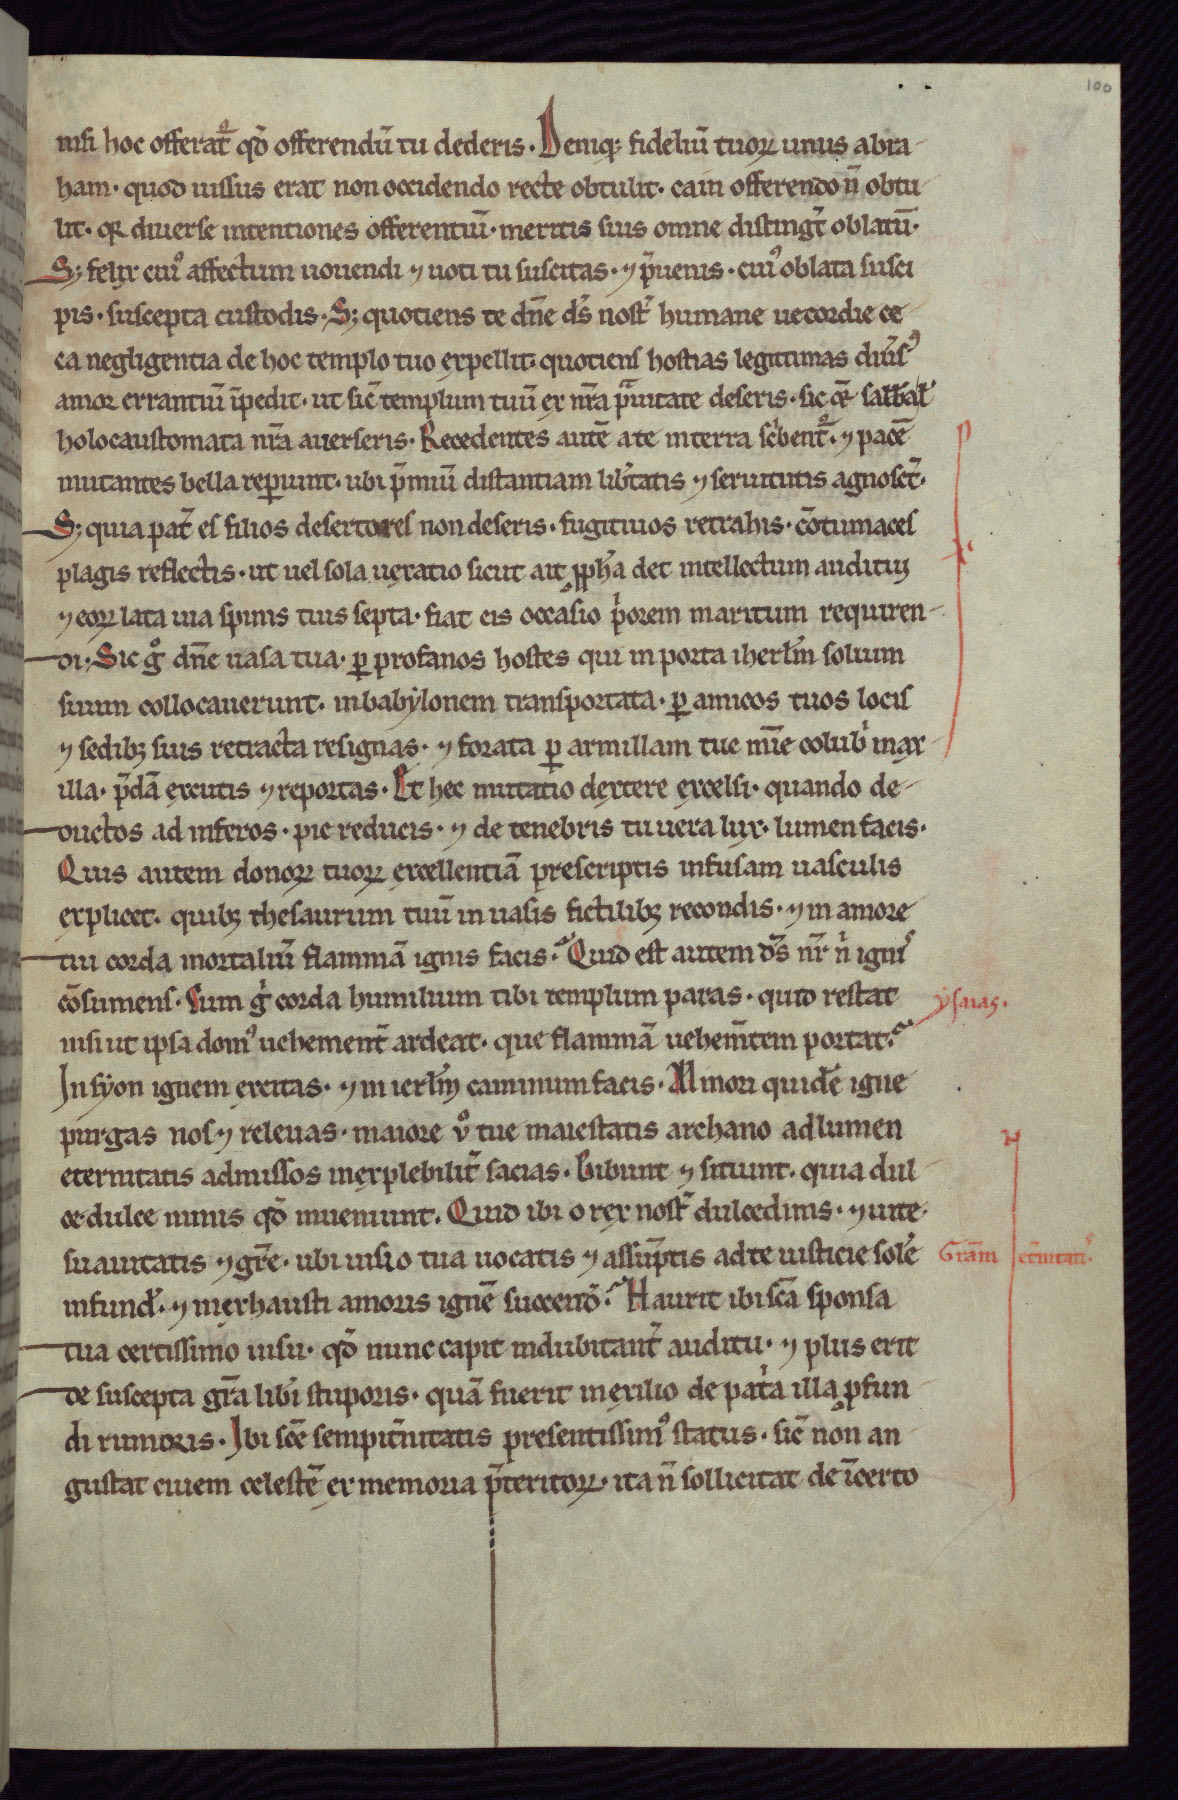 100
nisi hoc offerat̄ qd̄ offerendū tu dederis · Deniqꝫ fideliū tuoꝝ unus abra-
ham · quod iussus erat non occidendo recte obtulit · cain offerendo n̄ obtu-
lit · qꝛ diuerse intentiones offerentiū · meritis suis omne distingt̄ oblatū ·
Sꝫ felix cuiꝰ affectum uouendi ⁊ uoti tu suscitas · ⁊ p̄uenis · cuiꝰ oblata susci
pis · suscepta custodis · Sꝫ quotiens te dn̄e ds̄ nost̄ humane uecordie ce-
ca negligentia de hoc templo tuo expellit · quotiens hostias legitimas
amor errantiū īpedit · ut sic̄ templum tuū ex nr̄a p̄uitate deseris · sic
holocaustomata nr̄a auerseris · Recedentes autē a te in terra sc̄bent̄ · ⁊ pacē
mutantes bella repiunt · ubi p̄miū distantiam lib̄tatis ⁊ seruitutis agnosct̄ ·
Sꝫ quia pat̄ es filios desertores non deseris · fugitiuos retrahis · cōtumaces
plagis reflectis · ut uel sola uexatio sicut ait ꝓph̄a det intellectum auditui
⁊ eoꝝ lata uia spinis tuis septa · fiat eis occasio p̄orem maritum requiren-
di · Sic gͦ dn̄e uasa tua · ꝑ profanos hostes qui in porta iherlm̄ solium
suum collocauerunt · in babylonem transportata · ꝑ amicos tuos locis
⁊ sedibꝫ suis retracta resignas · ⁊ forata ꝑ armillam tue colub̄ max-
illa · p̄dā excutis ⁊ reportas · Et hec mutatio dextere excelsi · quando de-
ductos ad inferos · pie reducis · ⁊ de tenebris tu uera lux · lumen facis ·
Quis autem donoꝝ tuoꝝ excellentiā prescriptis infusam uasculis
explicet · quibꝫ thesaurum tuū in uasis fictilibꝫ recondis · ⁊ in amore
tui corda mortaliū flammā ignis facis · Quid est autem ds̄ nr̄ n̄ ignis
cōsumens · Cum gͥ corda humilium tibi templum paras · quid restat
nisi ut ipsa domꝰ uehement̄ ardeat · que flammā uehem̄tem portat ·
ysaias ·
In syon ignem excitas · ⁊ in ierlm̄ caminum facis · Amori quidē igne
purgas nos ⁊ releuas · maiore v̊ tue maiestatis archano ad lumen
eternitatis admissos inexplebilit̄ sacias · Bibunt ⁊ sitiunt · quia dul-
ce dulce nimis qd̄ inueniunt · Quid ibi o rex nost̄ dulcedinis · ⁊ uite
suauitatis ⁊ gr̄e · ubi uisio tua uocatis ⁊ assūptis ad te iusticie solē
Gr̄am et̄nitatis ·
infund̄ · ⁊ inexhausti amoris ignē succend̄ · Haurit ibi sc̄a sponsa
tua certissimo uisu · qd̄ nunc capit indubitant̄ auditu · ⁊ plus erit
de suscepta gr̄a lib̄i stuporis · quā fuerit in exilio de pat̄a illa ꝓfun-
di rumoris · Ibi sc̄e sempit̄nitatis presentissimꝰ status · sic̄ non an-
gustat ciuem celestē ex memoria p̄teritoꝝ · ita n̄ sollicitat de īcerto